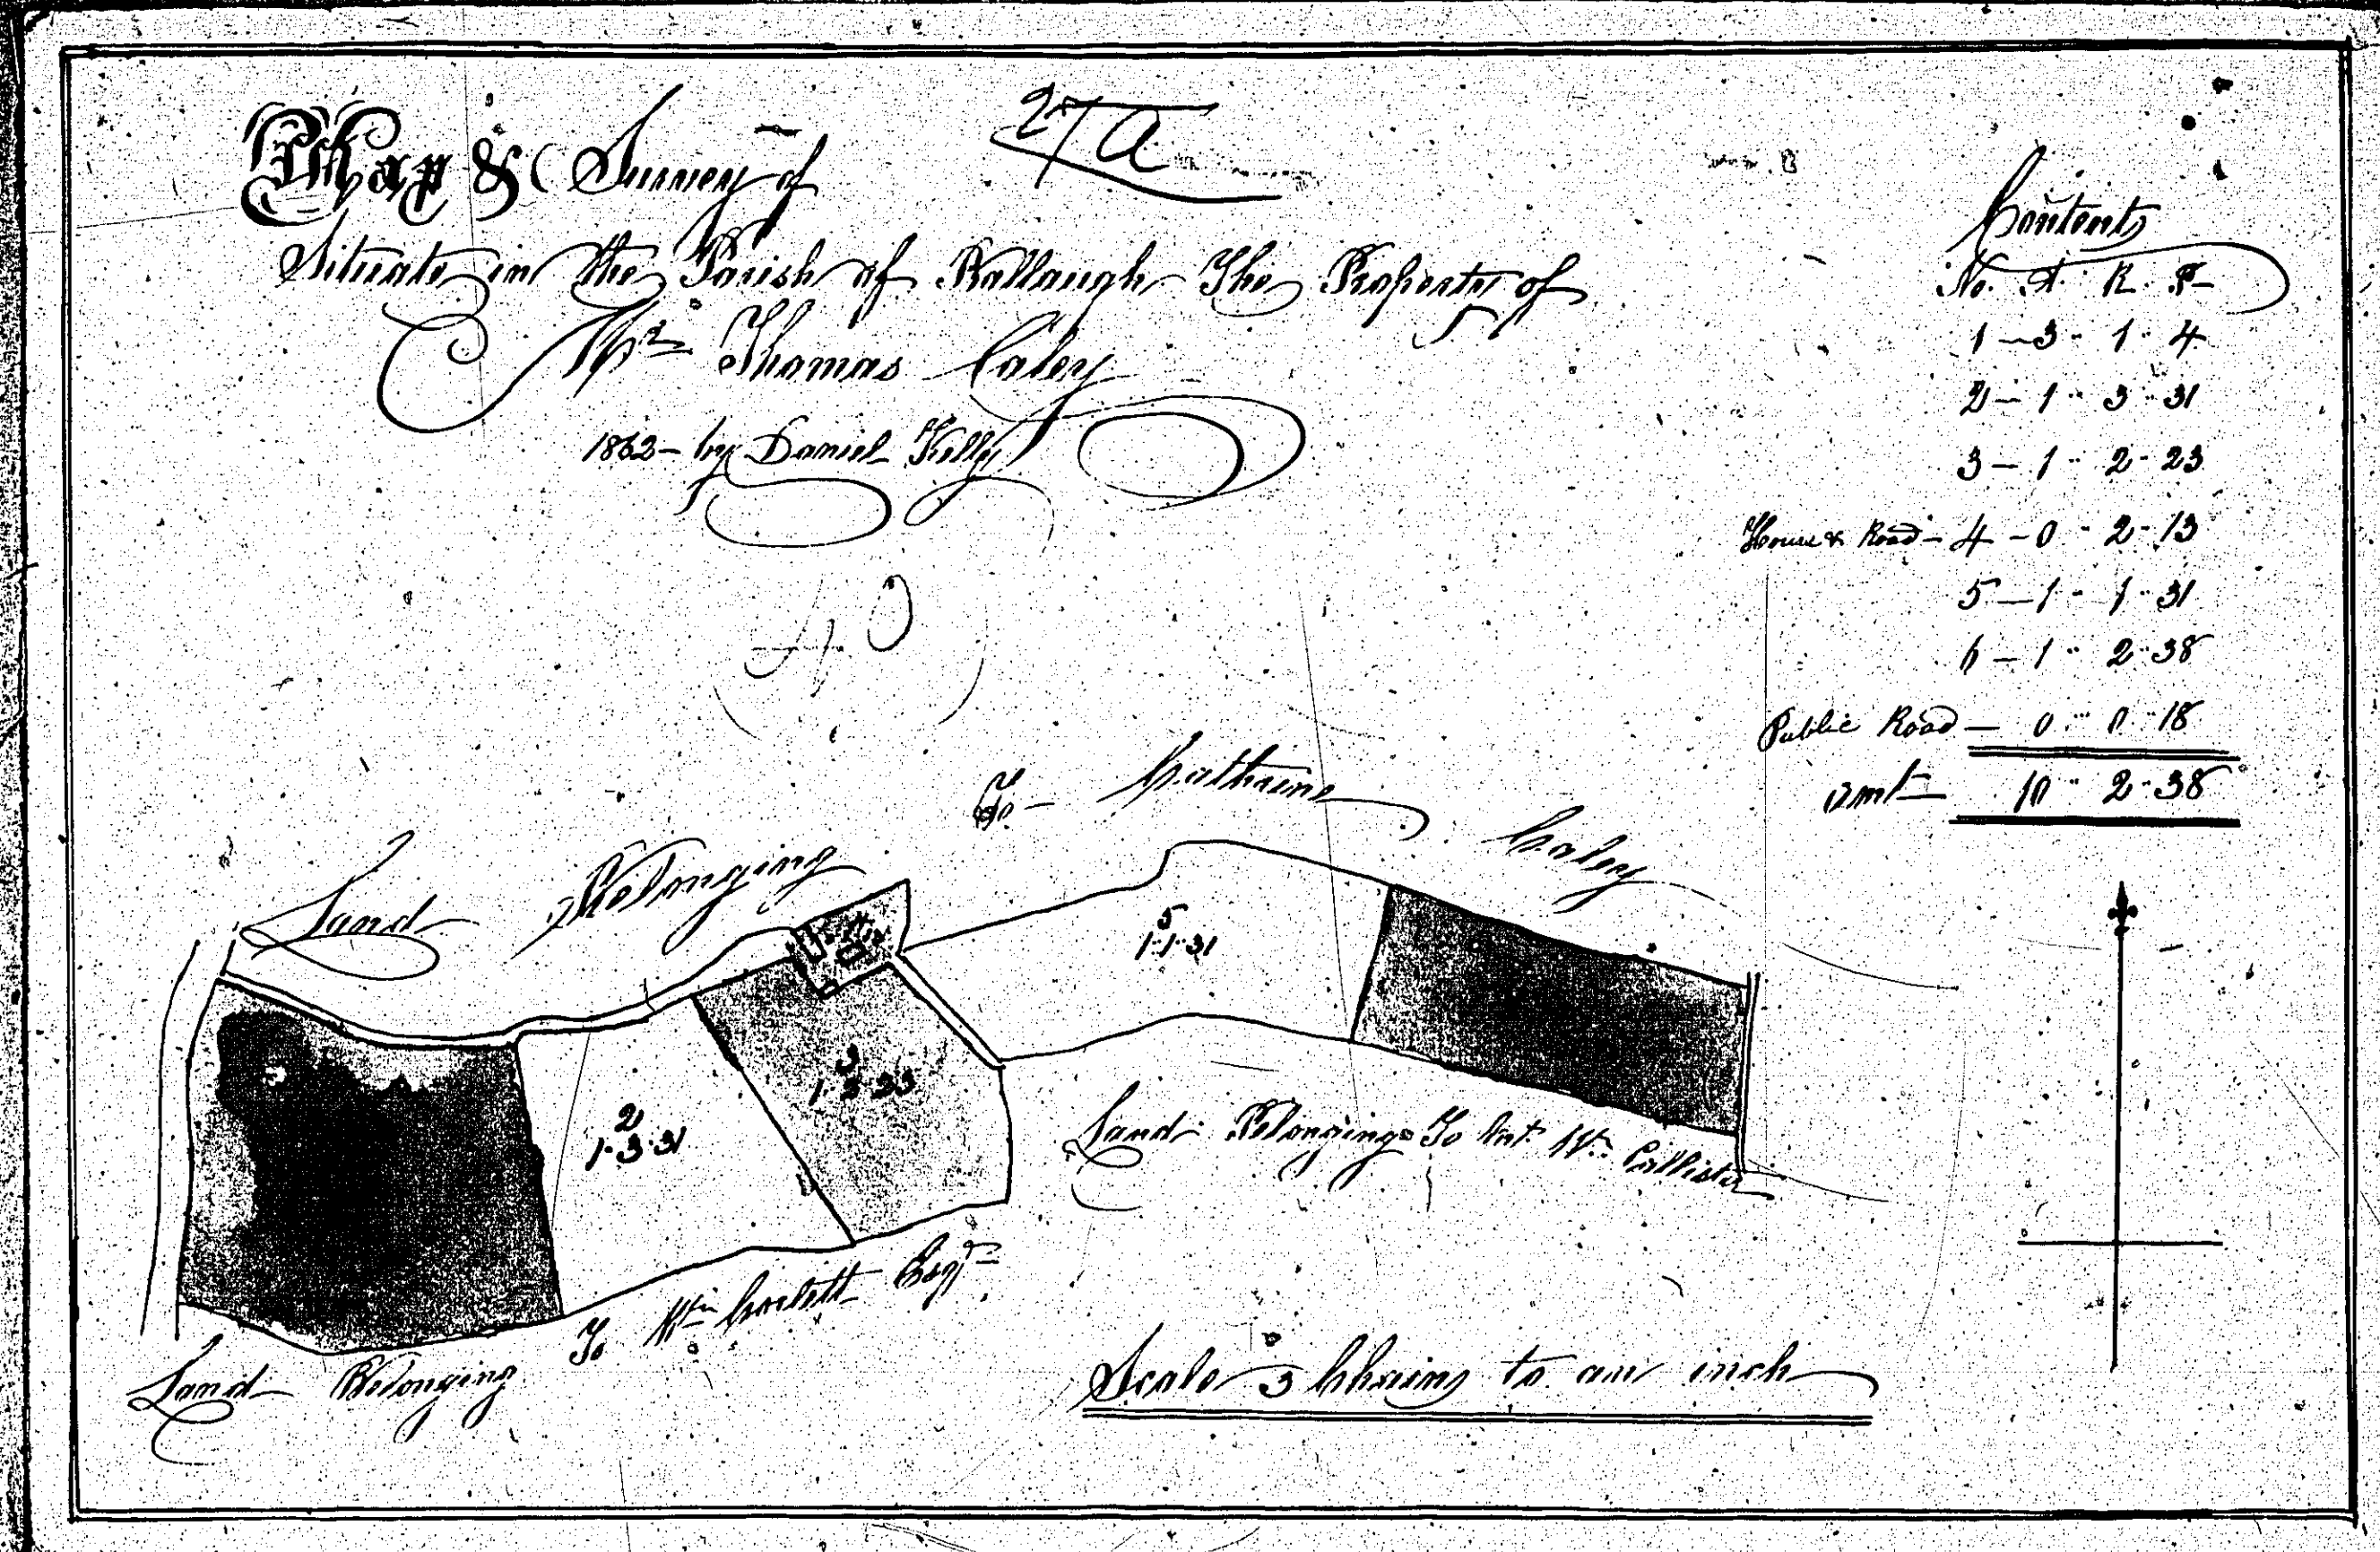 Map & Survey of
27 a
Situate in the Parish of Ballaugh The Property of
Mr. Thomas Caley
1862 – by Daniel Kelly
Contents
No. A. R. P
1 – 3 ·· 1 ·· 4
2 – 1 ·· 3 ·· 31
3 – 1 ·· 2 ·· 23
House & Road – 4 – 0 ·· 2 ·· 13
5 – 1 ·· 1 ·· 31
6 – 1 ·· 2 ·· 38
Public Road – 0 ·· 0 ·· 18
amt – 10 ·· 2 ·· 38
Land Belonging To – Cathrine Caley
5
1·1·31
2
1·3·31
3
1·2·23
Land Belonging To Wm. Callister
Land Belonging To Wm Corlett Esqr
Scale 3 Chains to an inch